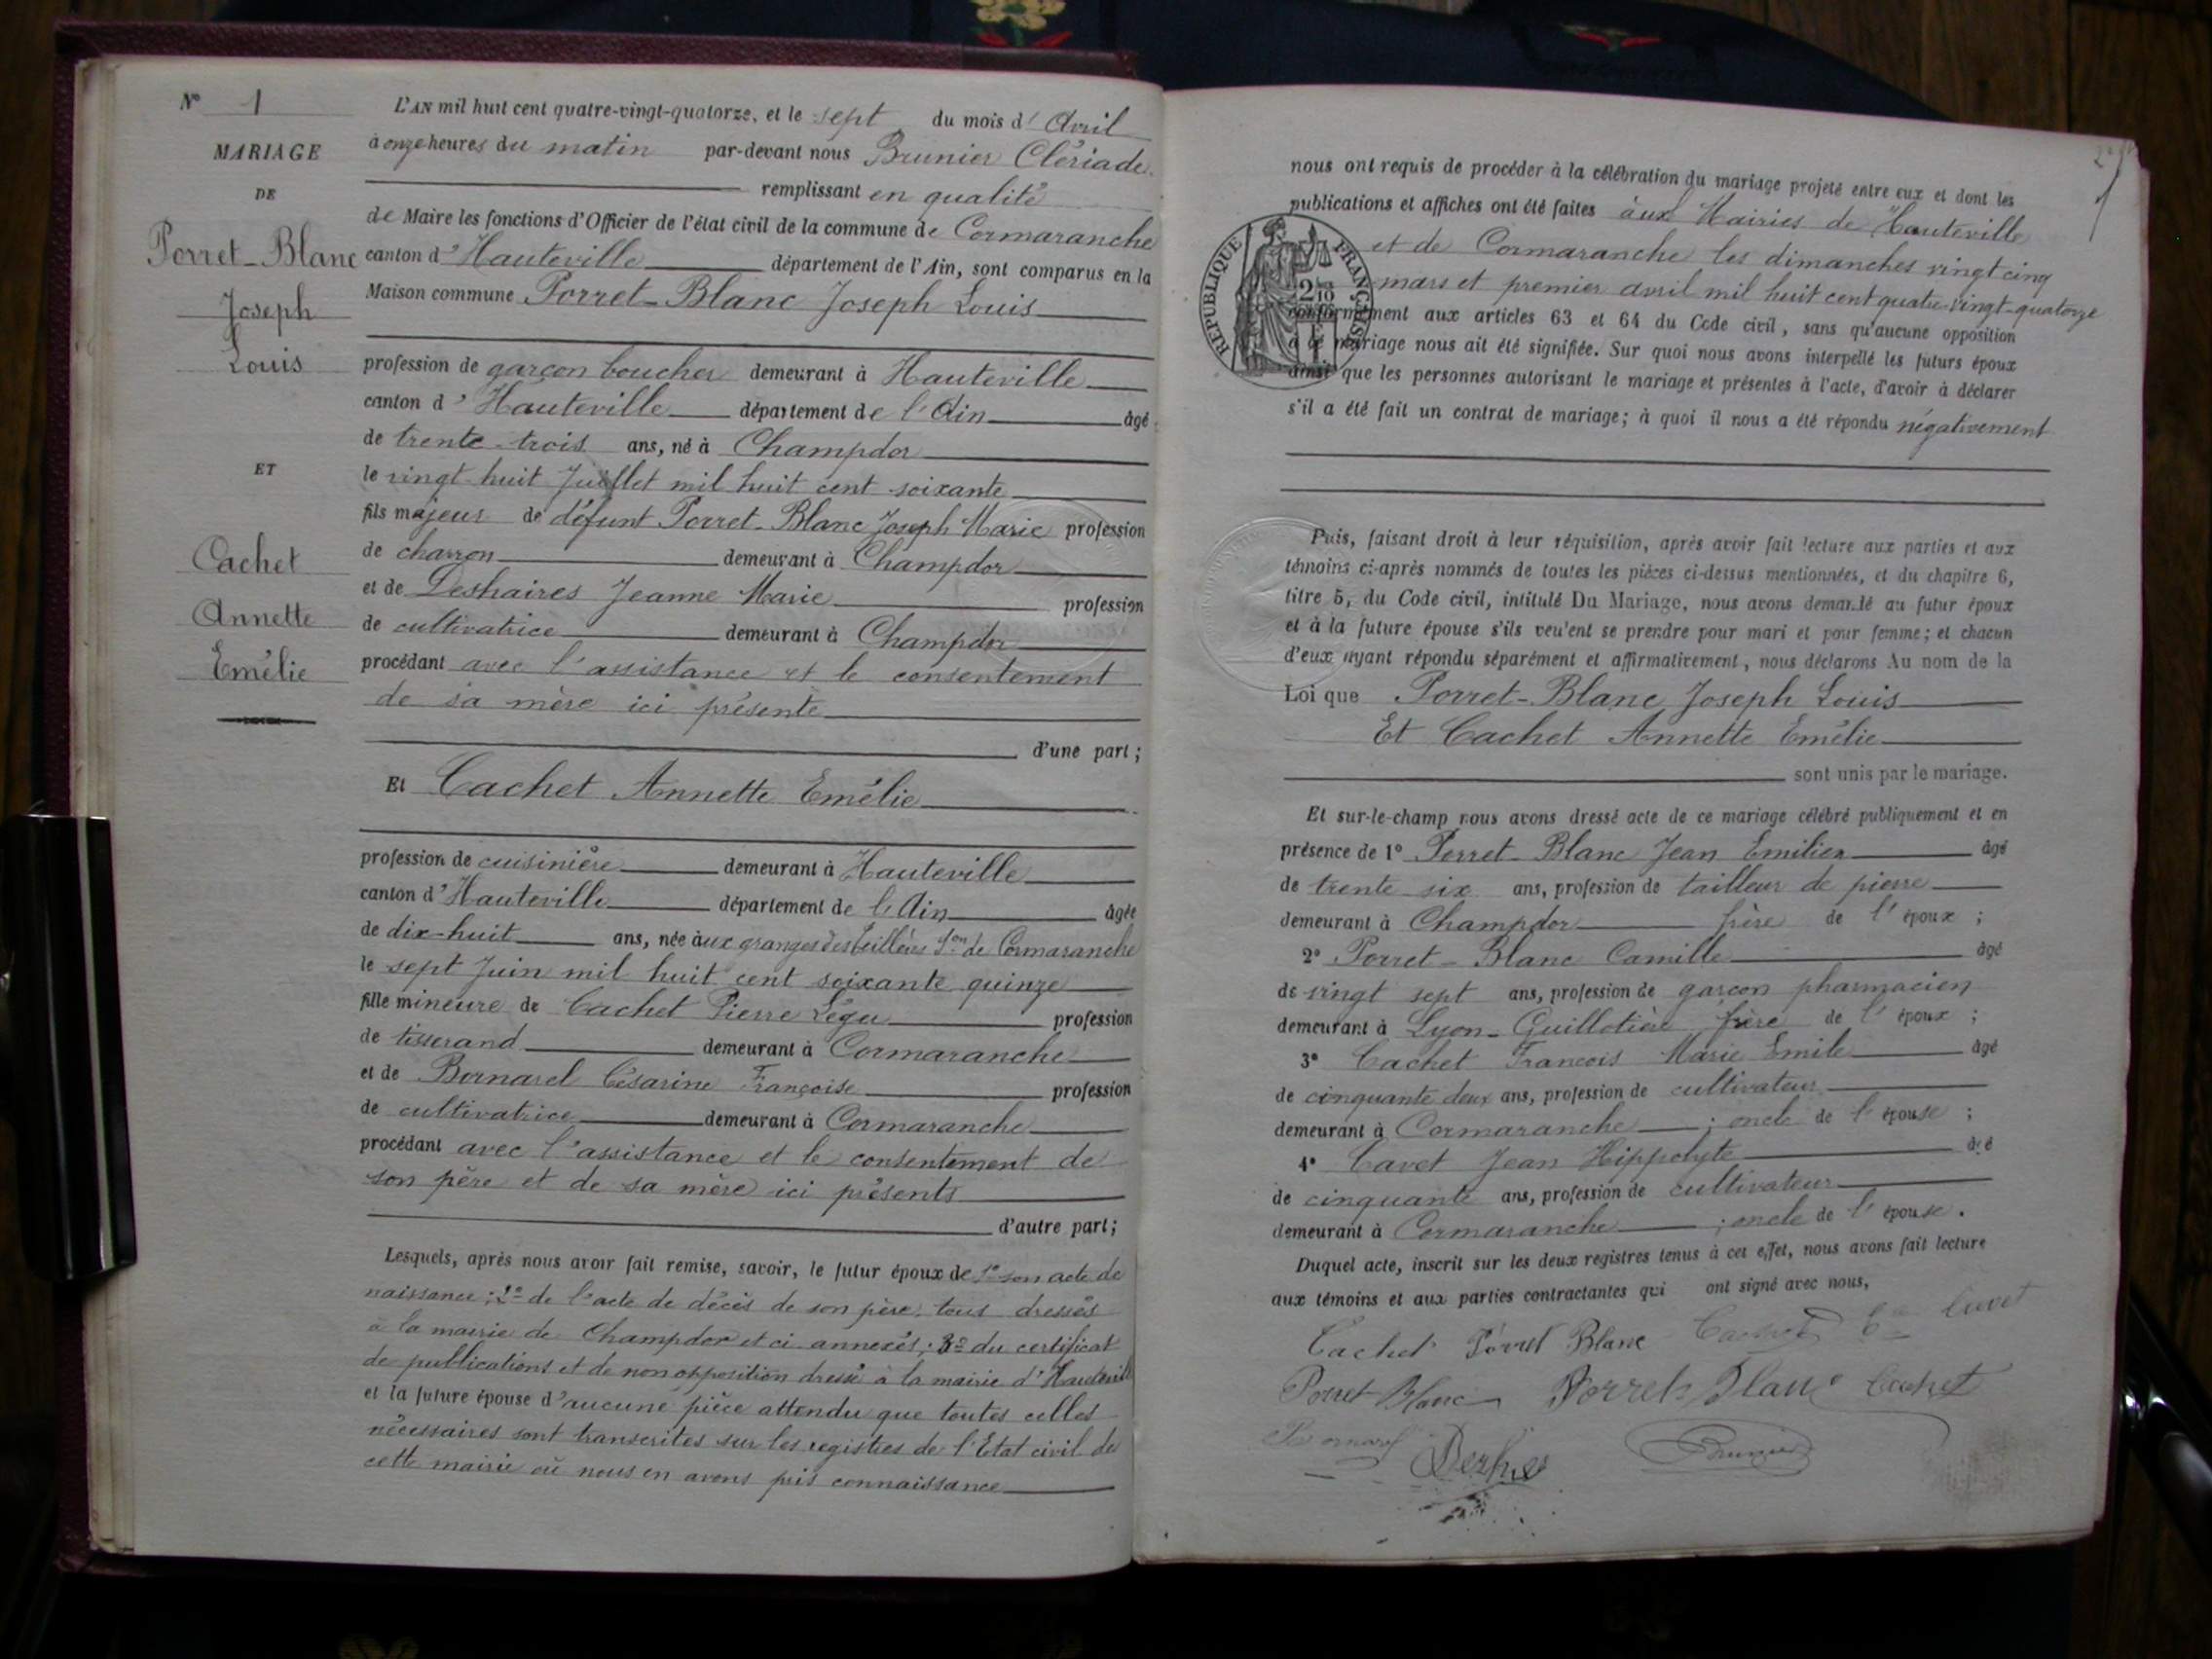 N° 1
MARIAGE
DE
Porret-Blanc
Joseph
Louis
ET
Cachet
Annette
Emélie
L'AN mil huit cent quatre-vingt-quatorze, et le sept du mois d'Avril
à onze heures du matin par-devant nous Brunier Clériade
remplissant en qualité
de Maire les fonctions d'Officier de l'état civil de la commune de Cormaranche
canton d'Hauteville département de l'Ain, sont comparus en la
Maison commune Porret-Blanc Joseph Louis
profession de garçon boucher demeurant à Hauteville
canton d'Hauteville département de l'Ain âgé
de trente-trois ans, né à Champdor
le vingt-huit Juillet mil huit cent soixante
fils majeur de défunt Porret-Blanc Joseph Marie profession
de charron demeurant à Champdor
et de Deshaires Jeanne Marie profession
de cultivatrice demeurant à Champdor
procédant avec l'assistance et le consentement
de sa mère ici présente
d'une part;
Et Cachet Annette Emélie
profession de cuisinière demeurant à Hauteville
canton d'Hauteville département de l'Ain âgée
de dix-huit ans, née aux granges des de Cormaranche
le sept Juin mil huit cent soixante quinze
fille mineure de Cachet Pierre profession
de tisserand demeurant à Cormaranche
et de Bornarel Césarine Françoise profession
de cultivatrice demeurant à Cormaranche
procédant avec l'assistance et le consentement de
son père et de sa mère ici présents
d'autre part;
Lesquels, après nous avoir fait remise, savoir, le futur époux de 1° son acte de
naissance; 2° de l'acte de décès de son père, tous dressés
à la mairie de Champdor et ci annexés; 3° du certificat
de publications et de non opposition dressé à la mairie d'Hauteville
et la future épouse d'aucune pièce attendu que toutes celles
nécessaires sont transcrites sur les registres de l'Etat civil de
cette mairie où nous en avons pris connaissance
nous ont requis de procéder à la célébration du mariage projeté entre eux et dont les
publications et affiches ont été faites aux Mairies de Hauteville
et de Cormaranche les dimanches vingt cinq
mars et premier avril mil huit cent quatre-vingt-quatorze
conformément aux articles 63 et 64 du Code civil, sans qu'aucune opposition
à ce mariage nous ait été signifiée. Sur quoi nous avons interpellé les futurs époux
ainsi que les personnes autorisant le mariage et présentes à l'acte, d'avoir à déclarer
s'il a été fait un contrat de mariage; à quoi il nous a été répondu négativement
RÉPUBLIQUE FRANÇAISE
Puis, faisant droit à leur réquisition, après avoir fait lecture aux parties et aux
témoins ci-après nommés de toutes les pièces ci-dessus mentionnées, et du chapitre 6,
titre 5, du Code civil, intitulé Du Mariage, nous avons demandé au futur époux
et à la future épouse s'ils veulent se prendre pour mari et pour femme; et chacun
d'eux ayant répondu séparément et affirmativement, nous déclarons Au nom de la
Loi que Porret-Blanc Joseph Louis
Et Cachet Annette Emélie
sont unis par le mariage.
Et sur-le-champ nous avons dressé acte de ce mariage célébré publiquement et en
présence de 1° Porret-Blanc Jean Emilien âgé
de trente six ans, profession de tailleur de pierre
demeurant à Champdor frère de l'époux;
2° Porret-Blanc Camille âgé
de vingt sept ans, profession de garçon pharmacien
demeurant à Lyon-Guillotière frère de l'époux;
3° Cachet François Marie Emile âgé
de cinquante deux ans, profession de cultivateur
demeurant à Cormaranche; oncle de l'épouse;
4° Cavet Jean Hippolyte âgé
de cinquante ans, profession de cultivateur
demeurant à Cormaranche; oncle de l'épouse.
Duquel acte, inscrit sur les deux registres tenus à cet effet, nous avons fait lecture
aux témoins et aux parties contractantes qui ont signé avec nous,
Cachet Porret Blanc Cachet Cavet
Porret-Blanc Porret-Blanc Cachet
Brunier